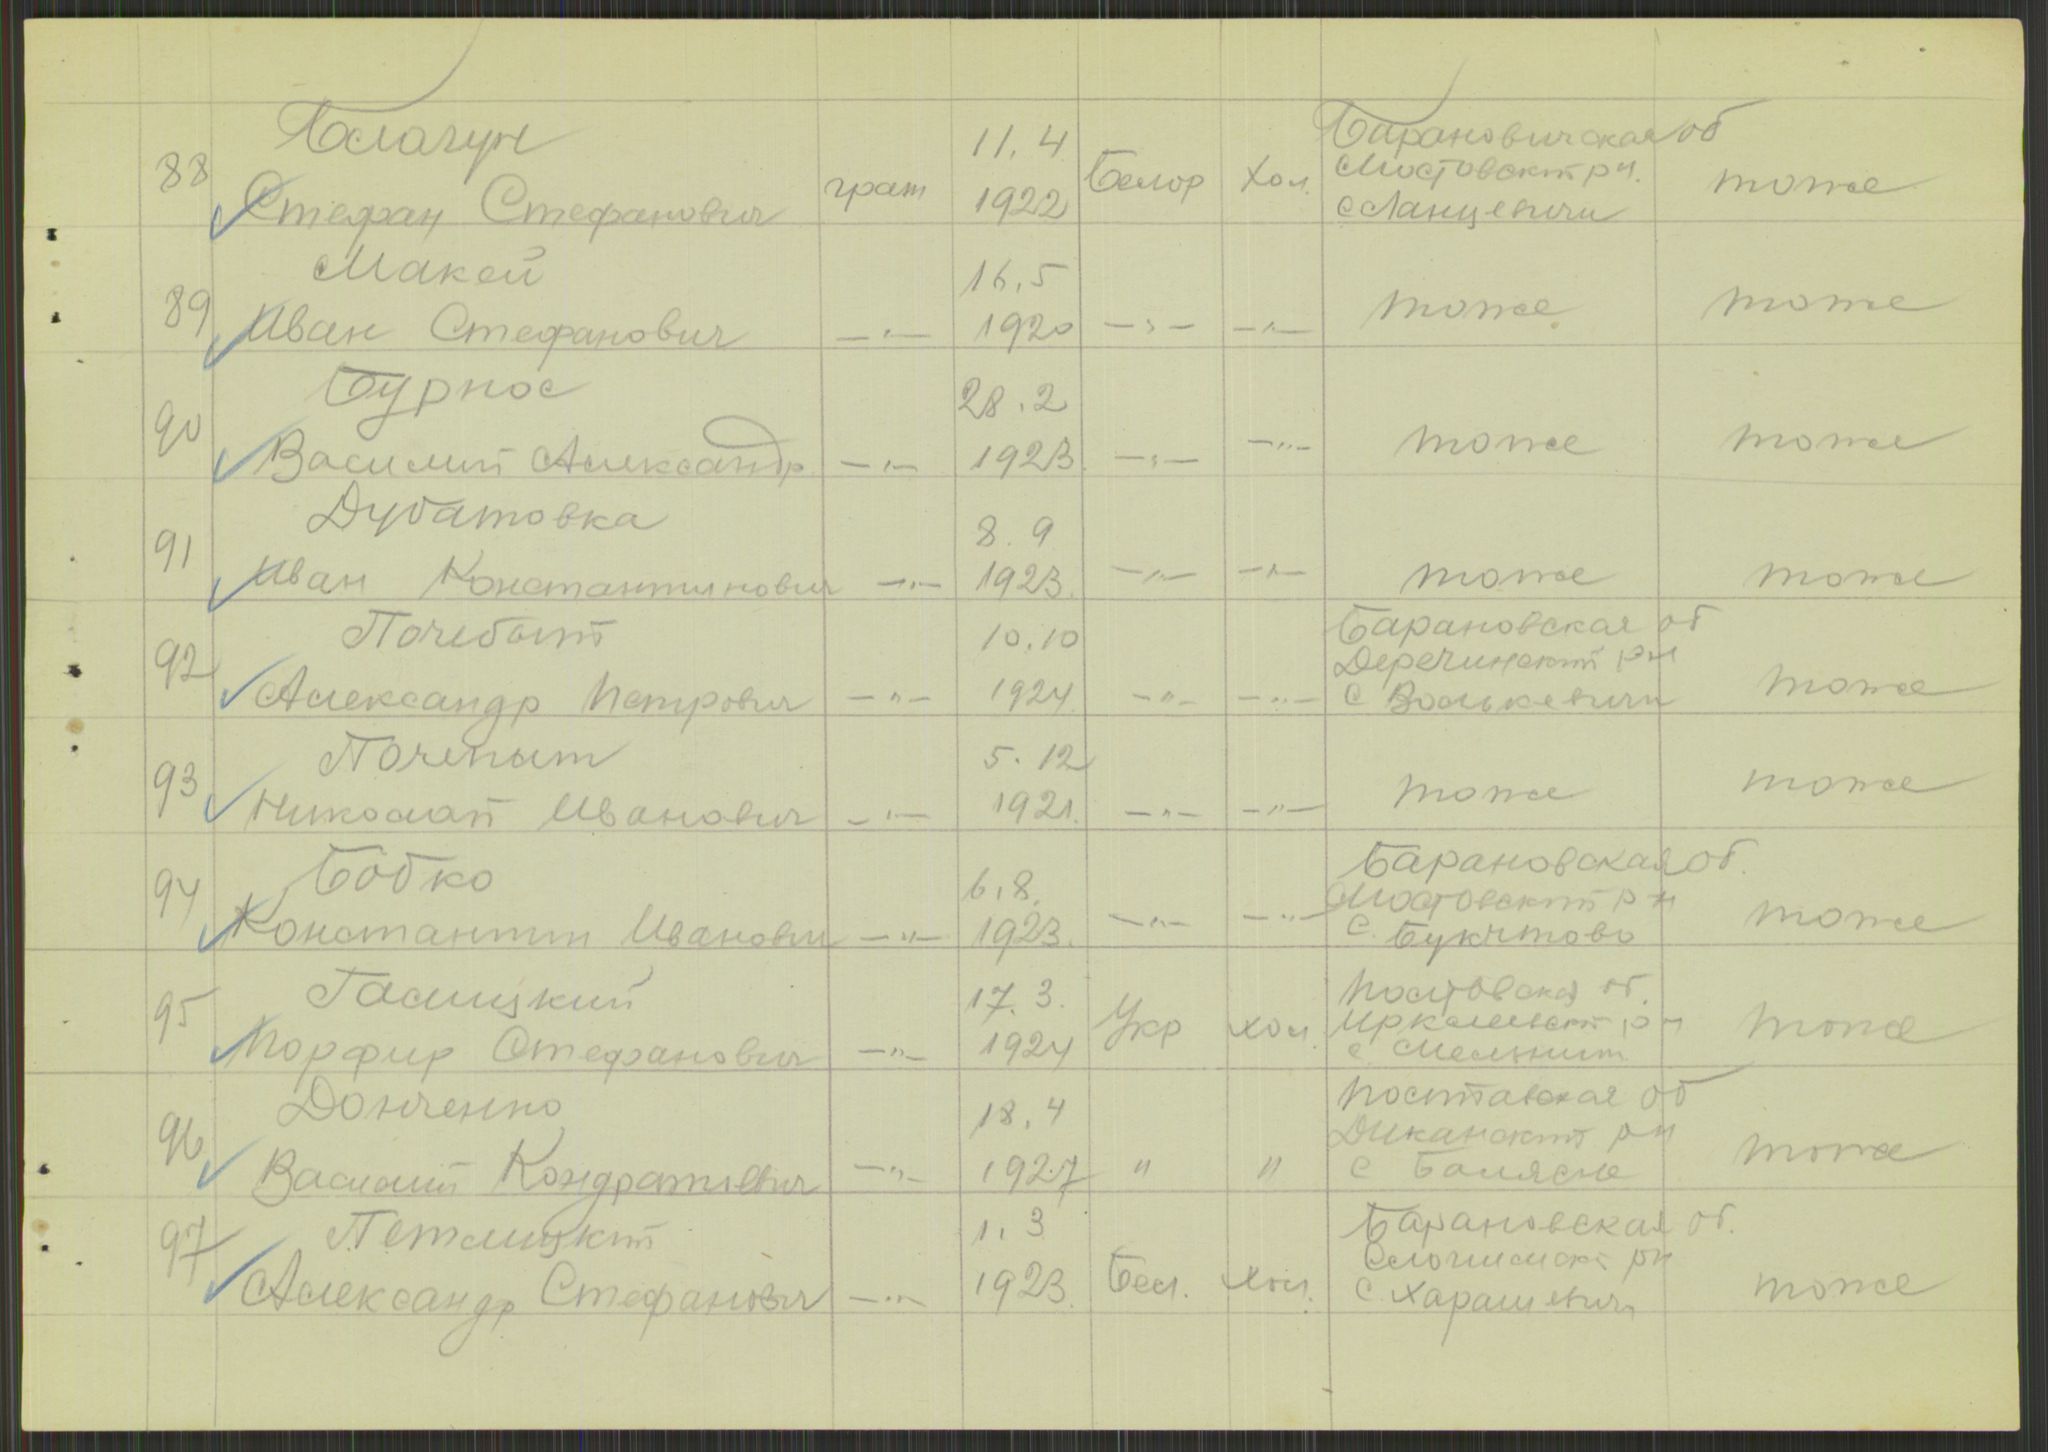 88 Благун 11.4 Барановичская об
Стефан Стефанович граж 1922 Белор Хол. Мостовский рн. тоже
с Ланцевичи
89 Макей 16.5
Иван Стефанович —"— 1920 —"— —"— тоже тоже
90 Бурнос 28.2
Василий Александр —"— 1923 —"— —"— тоже тоже
91 Дубатовка 8.9
Иван Константинович —"— 1923. —"— —"— тоже тоже
92 Почебыт 10.10 Барановская об
Деречинский рн
Александр Петрович —"— 1924 —"— —"— с Волькевичи тоже
93 Почепыт 5.12
Николай Иванович —"— 1921. —"— —"— тоже тоже
94 Бобко 6.8. Барановская об.
Мостовский рн
Константин Иванович —"— 1923. —"— —"— с. Букчтово тоже
95 Галицкий 17.3. об.
рн
Порфир Стефанович —"— 1924 Укр хол. с тоже
96 Донченко 18.4 Полтавская об
Диканский рн
Василий Кондратиевич —"— 1927 " " с Балясне тоже
97 Петлицкий 1.3 Барановская об.
рн
Александр Стефанович —"— 1923. Бел. Хол. с. Харашевичи тоже